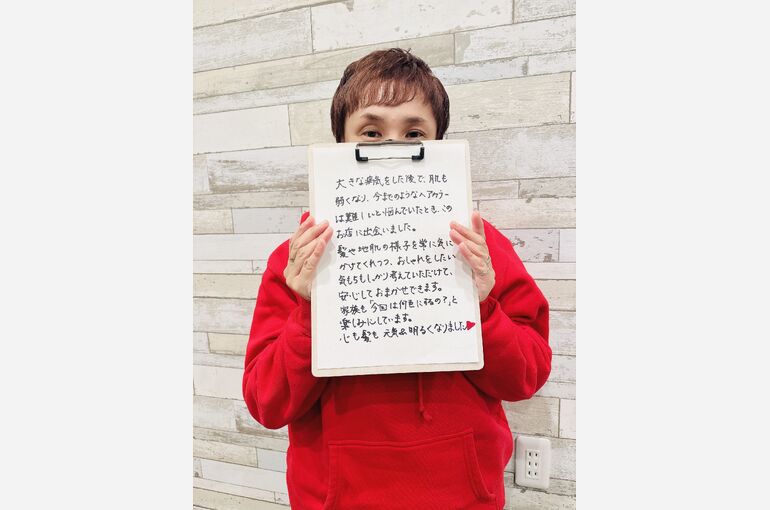 大きな病気をした後で、肌も
弱くなり、今までのようなヘアカラー
は難しいと悩んでいたとき、この
お店に出会いました。
髪や地肌の様子を常に気に
かけてくれつつ、おしゃれをしたい
気もちもしっかり考えていただけて、
安心しておまかせできます。
家族も「今回は何色にするの?」と
楽しみにしています。
心も髪も 元気&明るくなりました♥